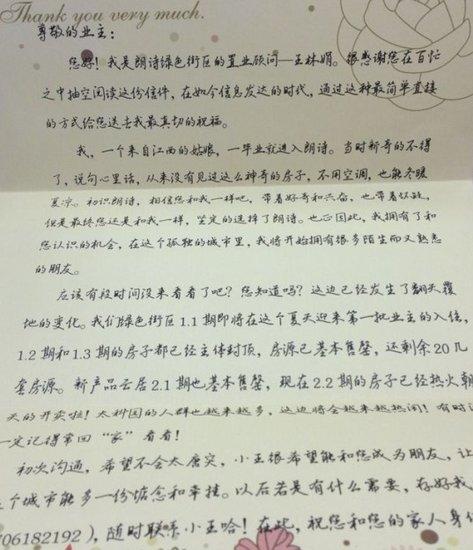 Thank you very much.
尊敬的业主：
您好！我是朗诗绿色街区的置业顾问—王林娟。很感谢您在百忙
之中抽空阅读这份信件，在如今信息发达的时代，通过这种最简单直接
的方式给您送去我最真切的祝福。
我，一个来自江西的姑娘，一毕业就进入朗诗。当时新奇的不得
了，说句心里话，从来没有见过这么神奇的房子，不用空调，也能冬暖
夏凉。初识朗诗，相信您和我一样吧，带着好奇和兴奋，也带着怀疑，
但是最终您还是和我一样，坚定的选择了朗诗。也正因此，我拥有了和
您认识的机会，在这个孤独的城市里，我将开始拥有很多陌生而又熟悉
的朋友。
应该有段时间没来看看了吧？您知道吗？这边已经发生了翻天覆
地的变化。我们绿色街区1.1期即将在这个夏天迎来第一批业主的入住，
1.2期和1.3期的房子都已经主体封顶，房源已基本售罄，还剩余20几
套房源。新产品云居2.1期也基本售罄，现在2.2期的房子已经热火朝
天的开卖啦！太科园的人群也越来越多，这边将会越来越热闹！有时
一定记得常回“家”看看！
初次沟通，希望不会太唐突，小王很希望能和您成为朋友，让
个城市能多一份惦念和牵挂。以后若是有什么需要，存好我
06182192），随时联系小王哈！在此，祝您和您的家人身